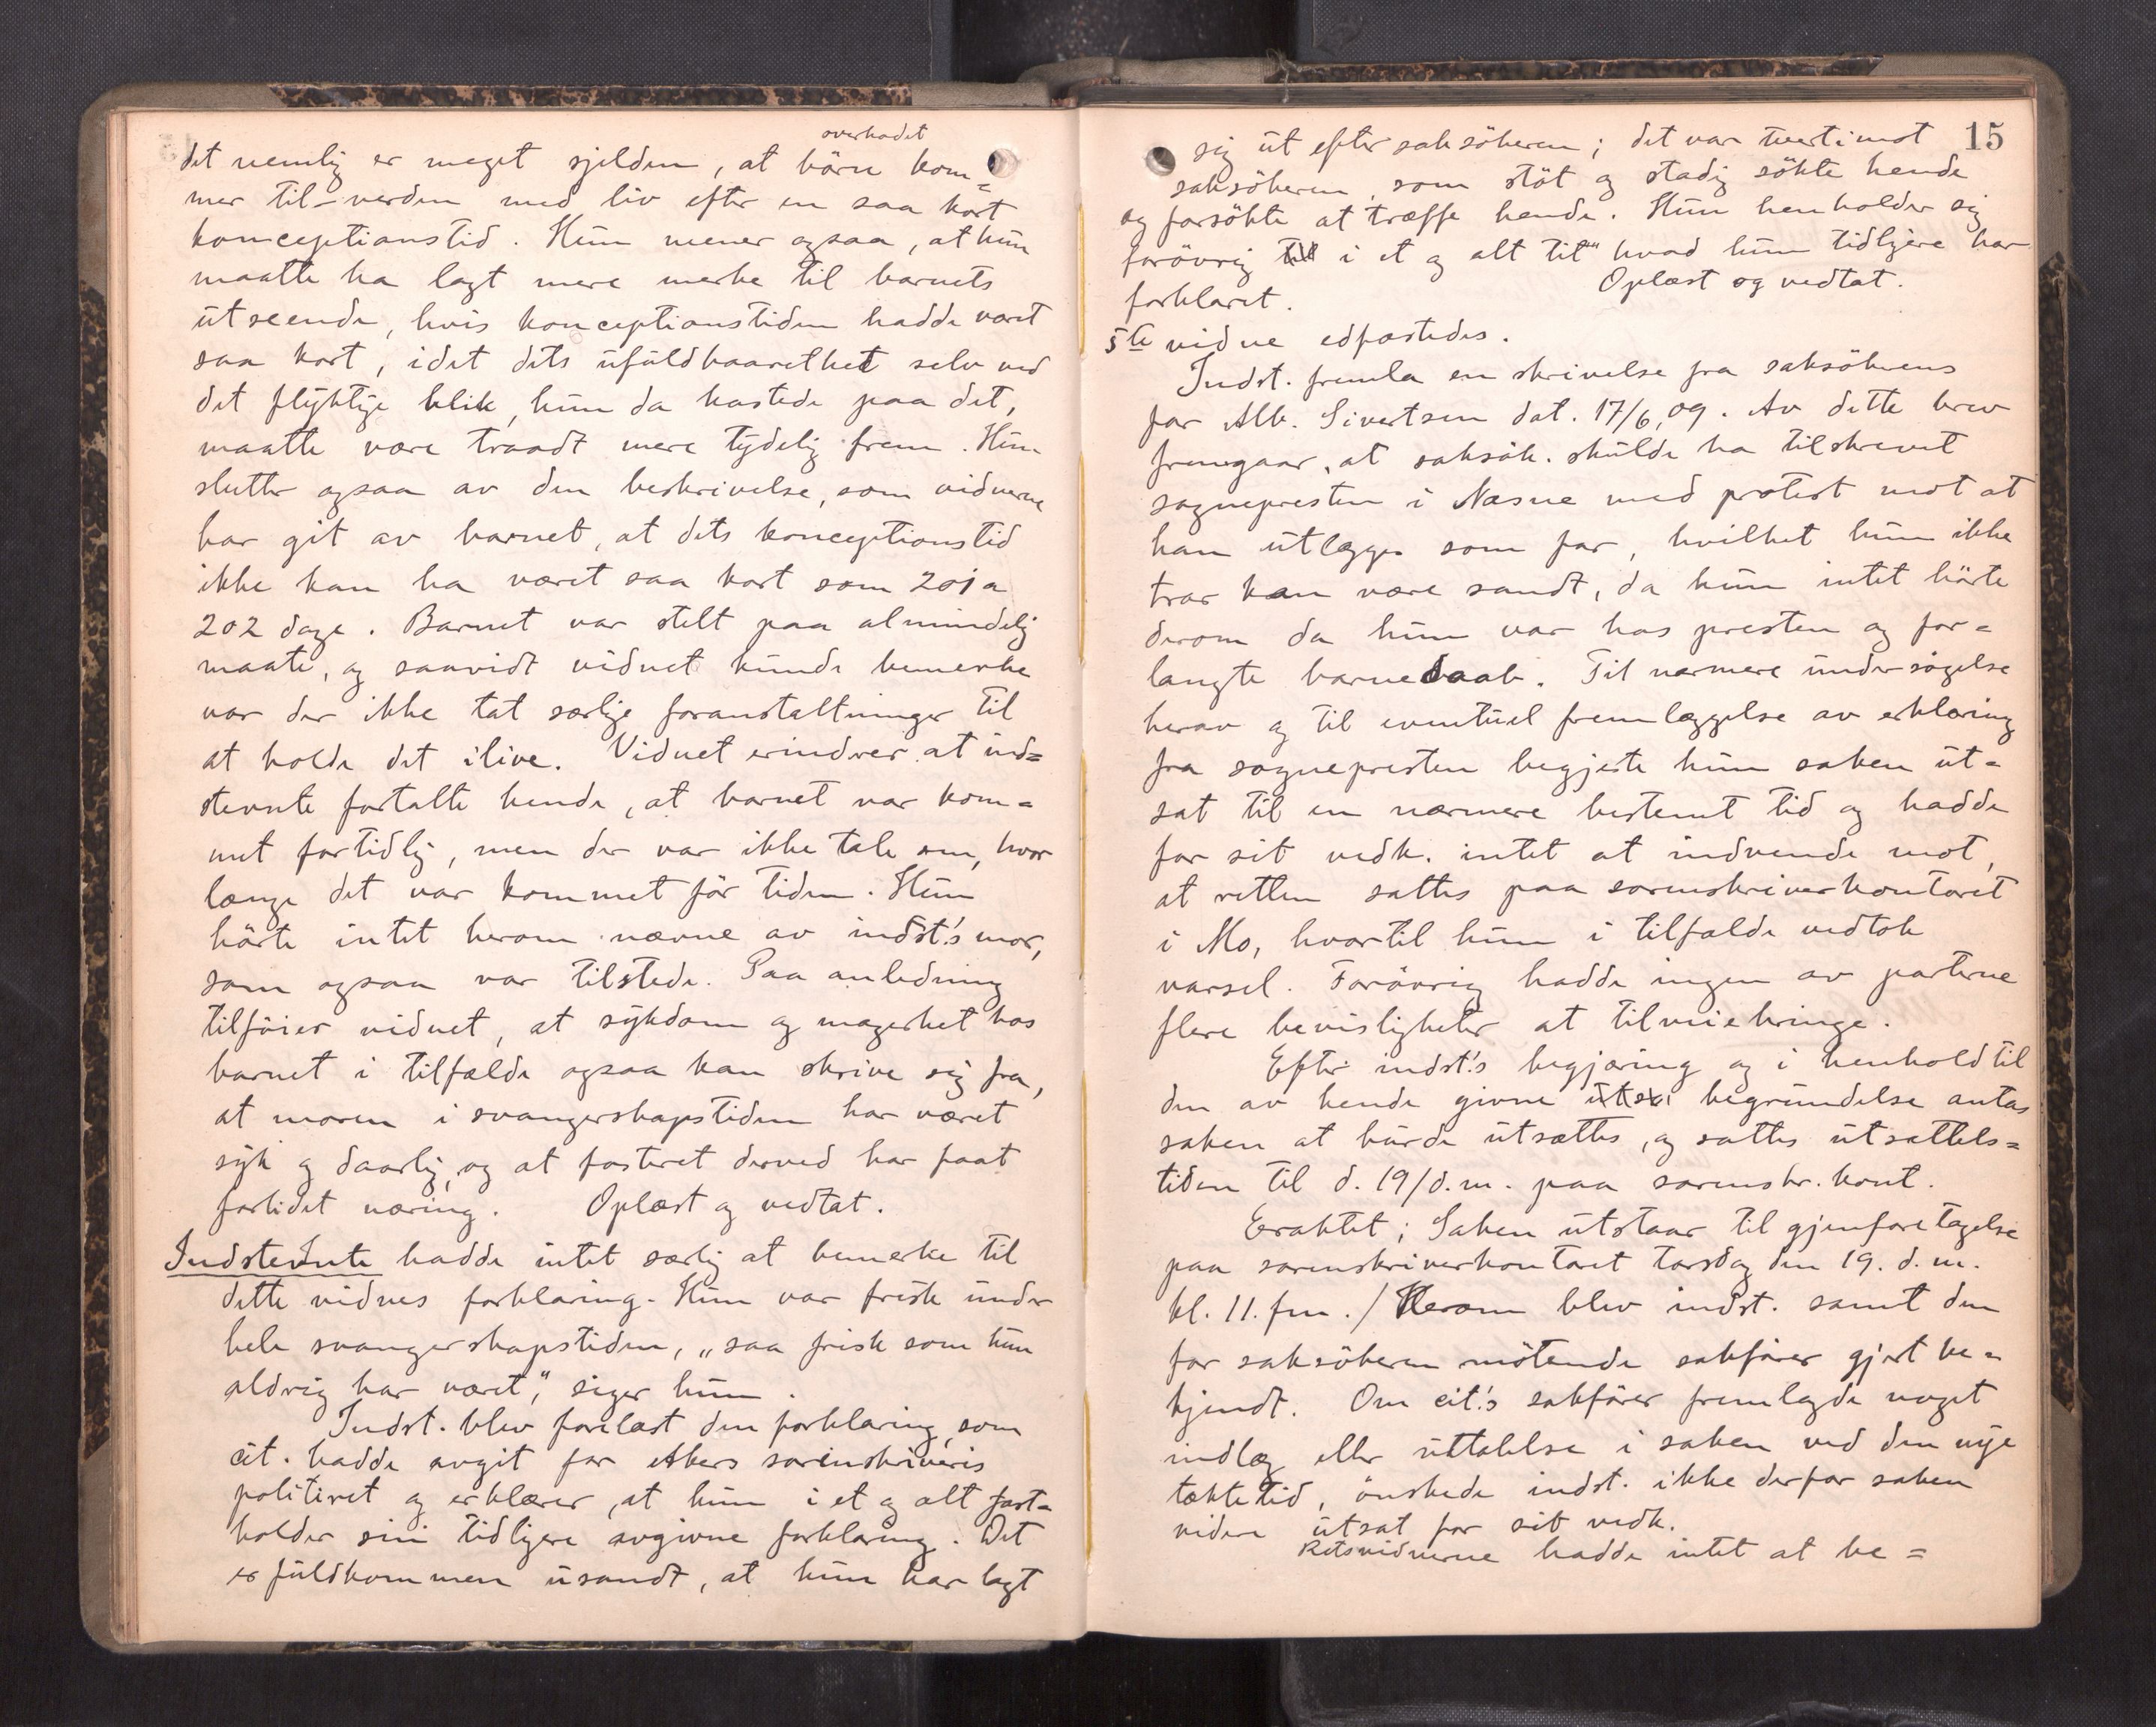 det nemlig er meget sjelden, at overhodet börn kom=
mer til-verden med liv efter en saa kort
konceptionstid. Hun mener ogsaa, at hun
maatte ha lagt mere merke til barnets
utseende, hvis konceptionstiden hadde været
saa kort, idet dets ufuldbaarethet selv ved
det flygtige blik, hun da kastede paa det,
maatte være traadt mere tydelig frem. Hun
slutter ogsaa av den beskrivelse, som vidnerne
har git av barnet, at dets konceptionstid
ikke kan ha været saa kort som 201 a
202 dage. Barnet var stelt paa almindelig
maate, og saavidt vidnet kunde bemerke
var der ikke tat særlige foranstaltninger til
at holde det ilive. Vidnet erindrer at ind=
stevnte fortalte hende, at barnet var kom=
met fortidlig, men der var ikke tale om, hvor
længe det var kommet för tiden. Hun
hörte intet herom nævne av indst's mor,
som ogsaa var tilstede. Paa anledning
tilföier vidnet, at sykdom og magerhet hos
barnet i tilfælde ogsaa kan skrive sig fra,
at moren i svangerskapstiden har været
syk og daarlig, og at fosteret derved har faat
forlidet næring. Oplæst og vedtat.
Indstevnte hadde intet særlig at bemerke til
dette vidnes forklaring. Hun var frisk under
hele svangerskapstiden, „saa frisk som hun
aldrig har været,“ siger hun.
Indst. blev forelæst den forklaring, som
cit. hadde avgit for Akers sorenskriveris
politiret og erklærer, at hun i et og alt fast=
holder sin tidligere avgivne forklaring. Det
er fuldkommen usandt, at hun har lagt
15
sig ut efter saksökeren; det var tvertimot
saksökeren, som stöt og stadig sökte hende
og forsökte at træffe hende. Hun henholder sig
forövrig till i et og alt til hvad hun tidligere har
forklaret. Oplæst og vedtat.
5te vidne edfæstedes.
Indst. fremla en skrivelse fra saksökerens
far Alb. Sivertsen dat. 17/6,09. Av dette brev
fremgaar, at saksök. skulde ha tilskrevet
sognepresten i Næsne med protest mot at
han utlægges som far, hvilket hun ikke
tror kan være sandt, da hun intet hörte
derom da hun var hos presten og for=
langte barnedaab. Til nærmere undersögelse
herav og til eventuel fremlæggelse av erklæring
fra sognepresten begjerte hun saken ut=
sat til en nærmere bestemt tid og hadde
for sit vedk. intet at indvende mot,
at retten sattes paa sorenskriverkontoret
i Mo, hvortil hun i tilfælde vedtok
varsel. Forövrig hadde ingen av parterne
flere bevisligheter at tilveiebringe.
Efter indst's begjæring og i henhold til
den av hende givne utsæ begrundelse antas
saken at burde utsættes, og sattes utsættels=
tiden til d. 19/d.m. paa sorenskr. kont.
Eraktet; Saken utstaar til gjenforetagelse
paa sorenskriverkontoret torsdag den 19. d. m.
kl. 11. fm./ Herom blev indst. samt den
for saksökeren mötende sakförer gjort be=
kjendt. Om cit's sakförer fremlagde noget
indlæg eller uttalelse i saken ved den nye
tæktetid, önskede indst. ikke derfor saken
videre utsat for sit vedk.
Retsvidnerne hadde intet at be=